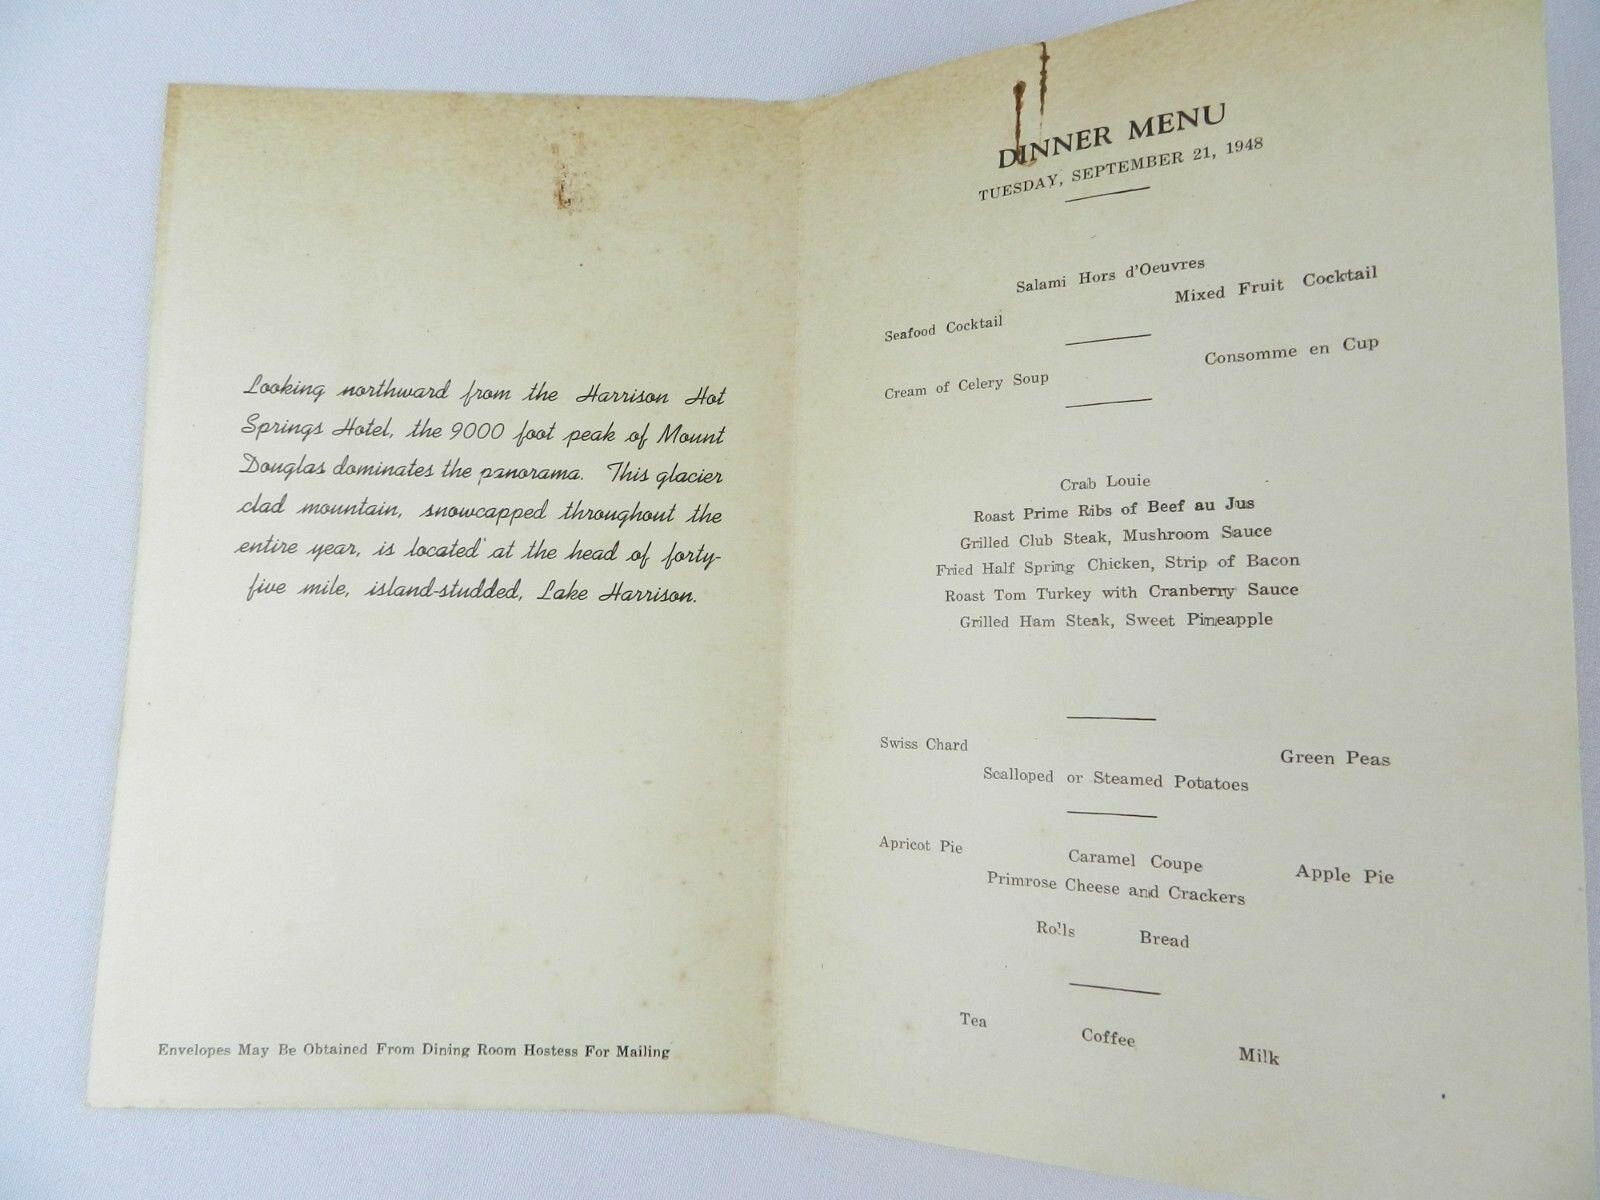 Looking northward from the Harrison Hot
Springs Hotel, the 9000 foot peak of Mount
Douglas dominates the panorama. This glacier
clad mountain, snowcapped throughout the
entire year, is located at the head of forty-
five mile, island-studded, Lake Harrison.
Envelopes May Be Obtained From Dining Room Hostess For Mailing
DINNER MENU
TUESDAY, SEPTEMBER 21, 1948
Salami Hors d'Oeuvres
Seafood Cocktail Mixed Fruit Cocktail
Cream of Celery Soup Consomme en Cup
Crab Louie
Roast Prime Ribs of Beef au Jus
Grilled Club Steak, Mushroom Sauce
Fried Half Spring Chicken, Strip of Bacon
Roast Tom Turkey with Cranberry Sauce
Grilled Ham Steak, Sweet Pineapple
Swiss Chard Green Peas
Scalloped or Steamed Potatoes
Apricot Pie Caramel Coupe Apple Pie
Primrose Cheese and Crackers
Rolls Bread
Tea Coffee Milk